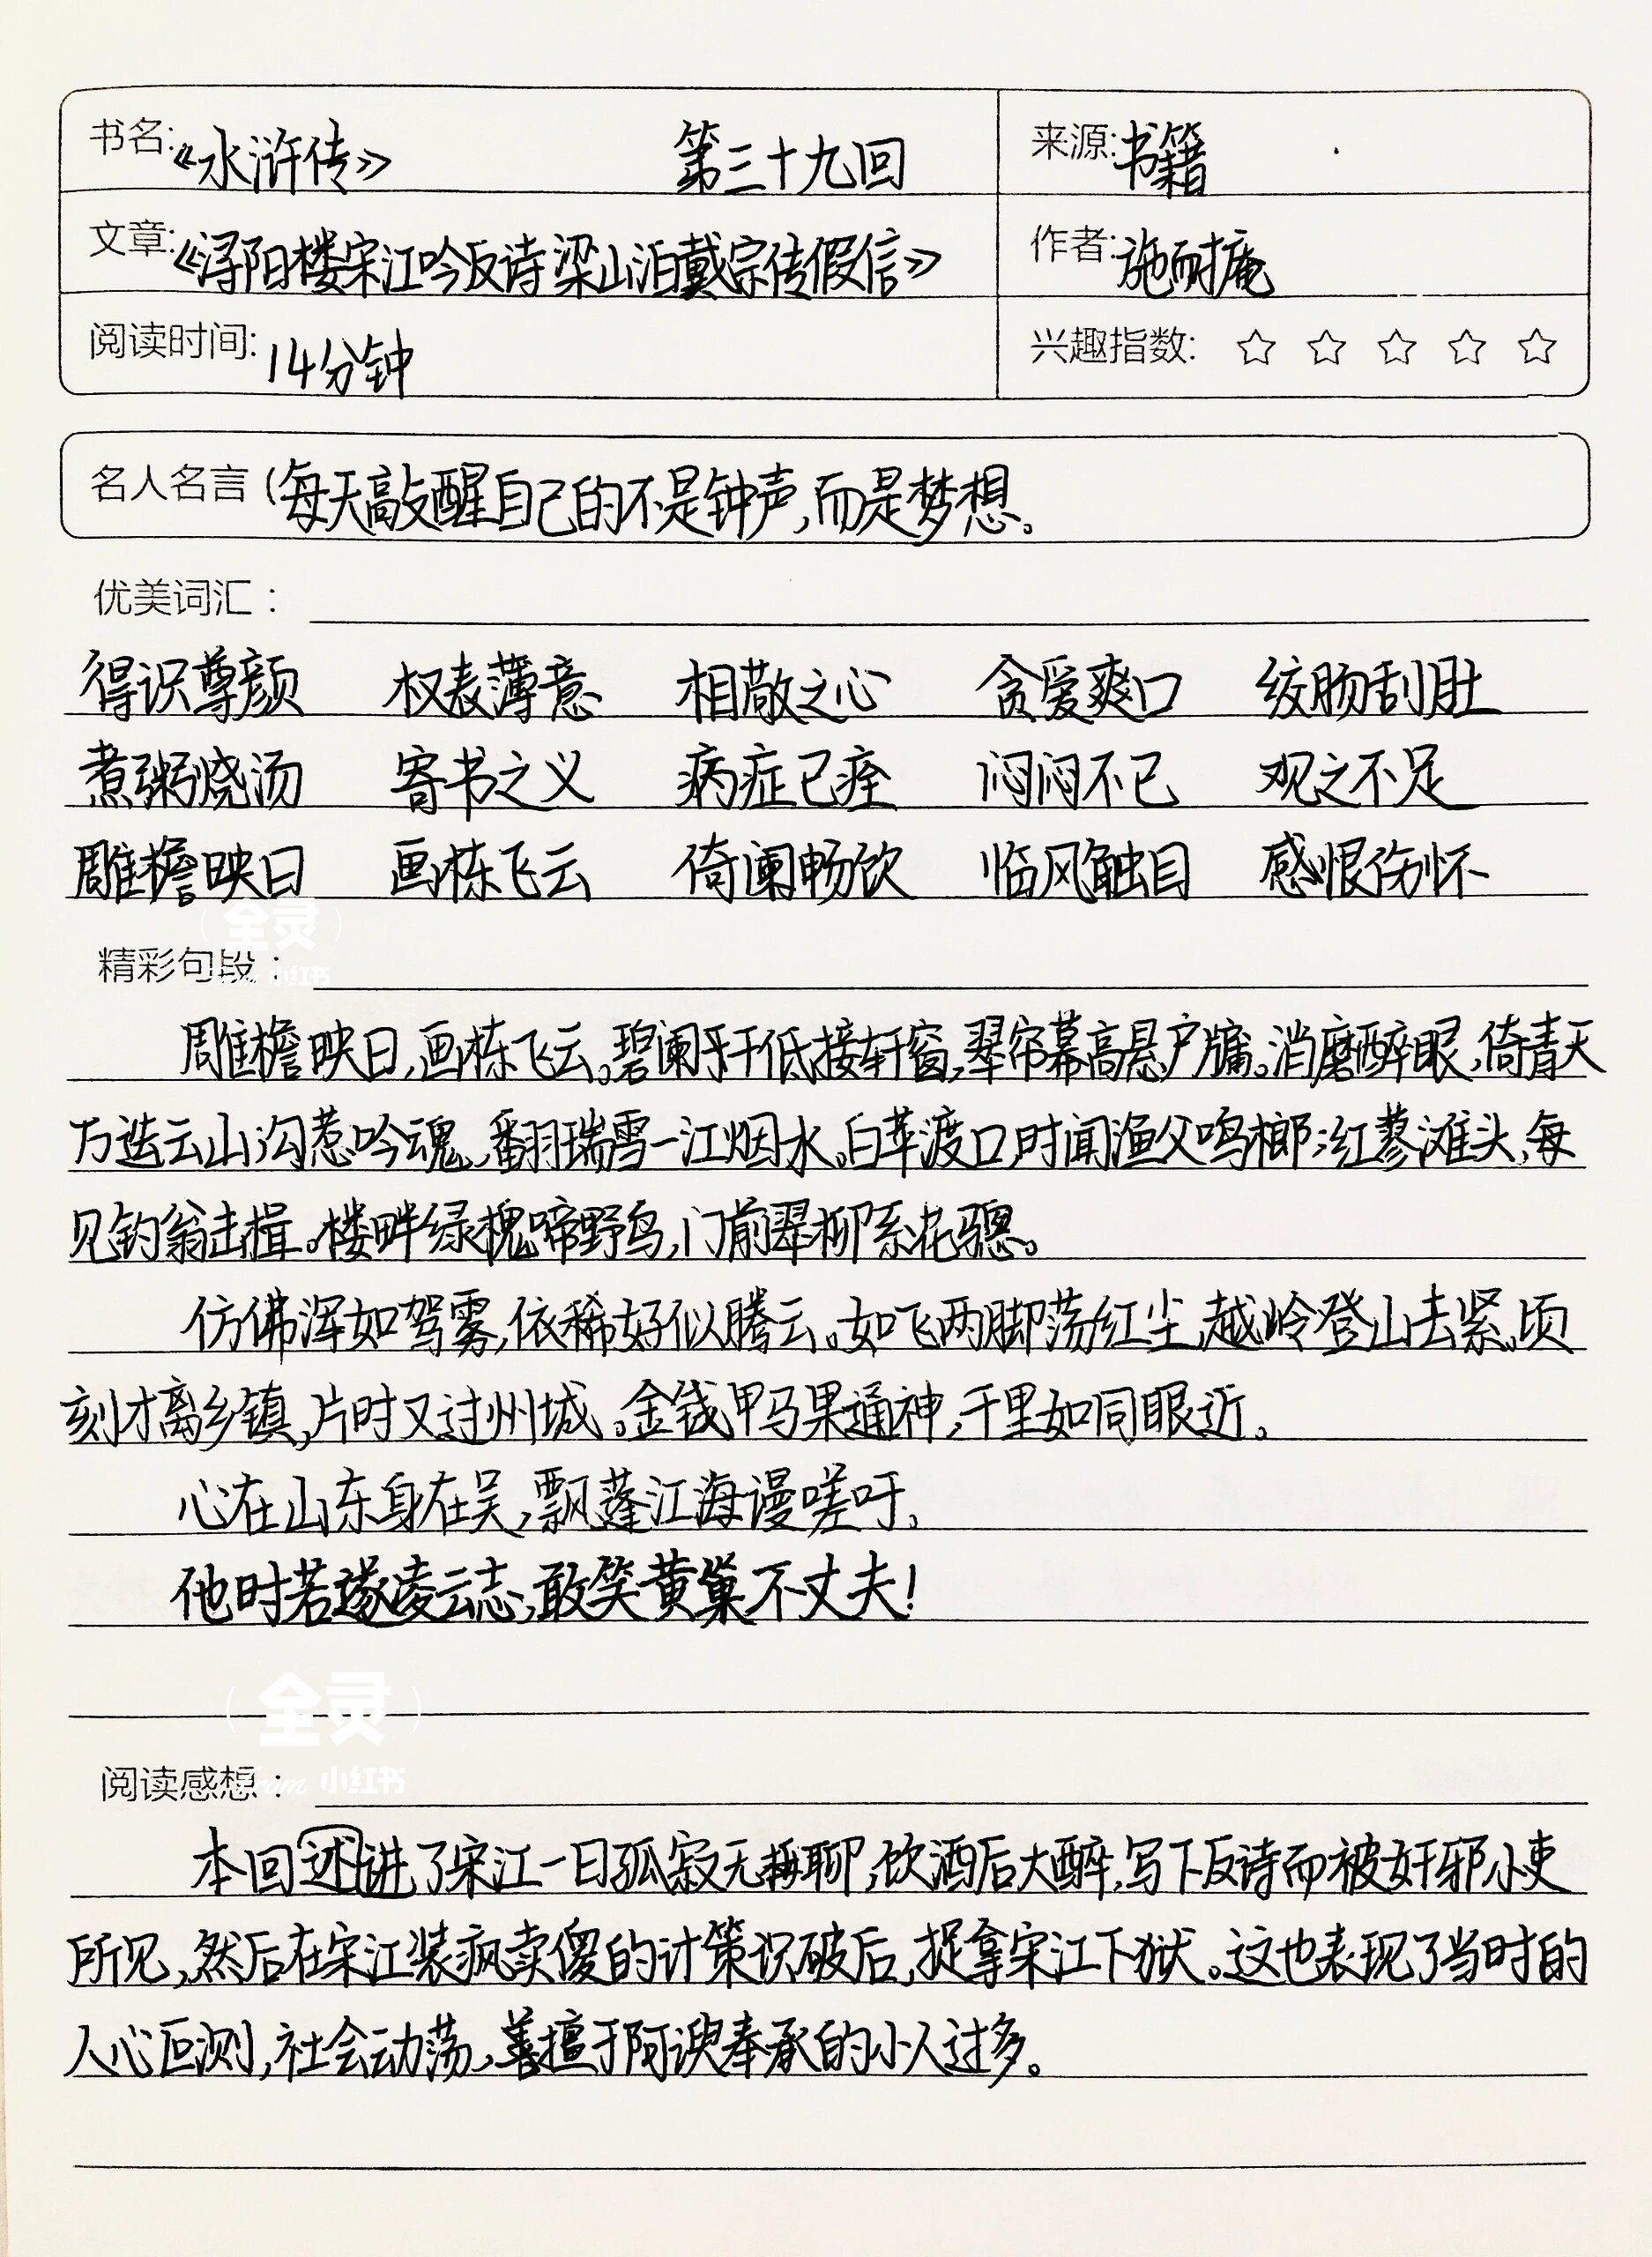 书名:《水浒传》 第三十九回 来源:书籍
文章:《浔阳楼宋江吟反诗 梁山泊戴宗传假信》 作者:施耐庵
阅读时间:14分钟 兴趣指数: ☆ ☆ ☆ ☆ ☆
名人名言 (每天敲醒自己的不是钟声,而是梦想。
优美词汇:
得识尊颜 权表薄意 相敬之心 贪爱爽口 绞肠刮肚
煮粥烧汤 寄书之义 病症已痊 闷闷不已 观之不足
雕檐映日 画栋飞云 倚阑畅饮 临风触目 感恨伤怀
全灵
精彩句段:
小红书
雕檐映日,画栋飞云。碧阑干低接轩窗,翠帘幕高悬户牖。消磨醉眼,倚青天
万迭云山;沟惹吟魂,翻瑞雪一江烟水。白苹渡口,时闻渔父鸣榔;红蓼滩头,每
见钓翁击楫。楼畔绿槐啼野鸟,门前翠柳系花骢。
仿佛浑如驾雾,依稀好似腾云。如飞两脚荡红尘,越岭登山去紧。顷
刻才离乡镇,片时又过州城。金钱甲马果通神,千里如同眼近。
心在山东身在吴,飘蓬江海谩嗟吁。
他时若遂凌云志,敢笑黄巢不丈夫!
全灵
阅读感想:
From 小红书
本回述讲了宋江一日孤寂无聊,饮酒后大醉,写下反诗而被奸邪小吏
所见,然后在宋江装疯卖傻的计策识破后,捉拿宋江下狱。这也表现了当时的
人心叵测,社会动荡,善擅于阿谀奉承的小人过多。